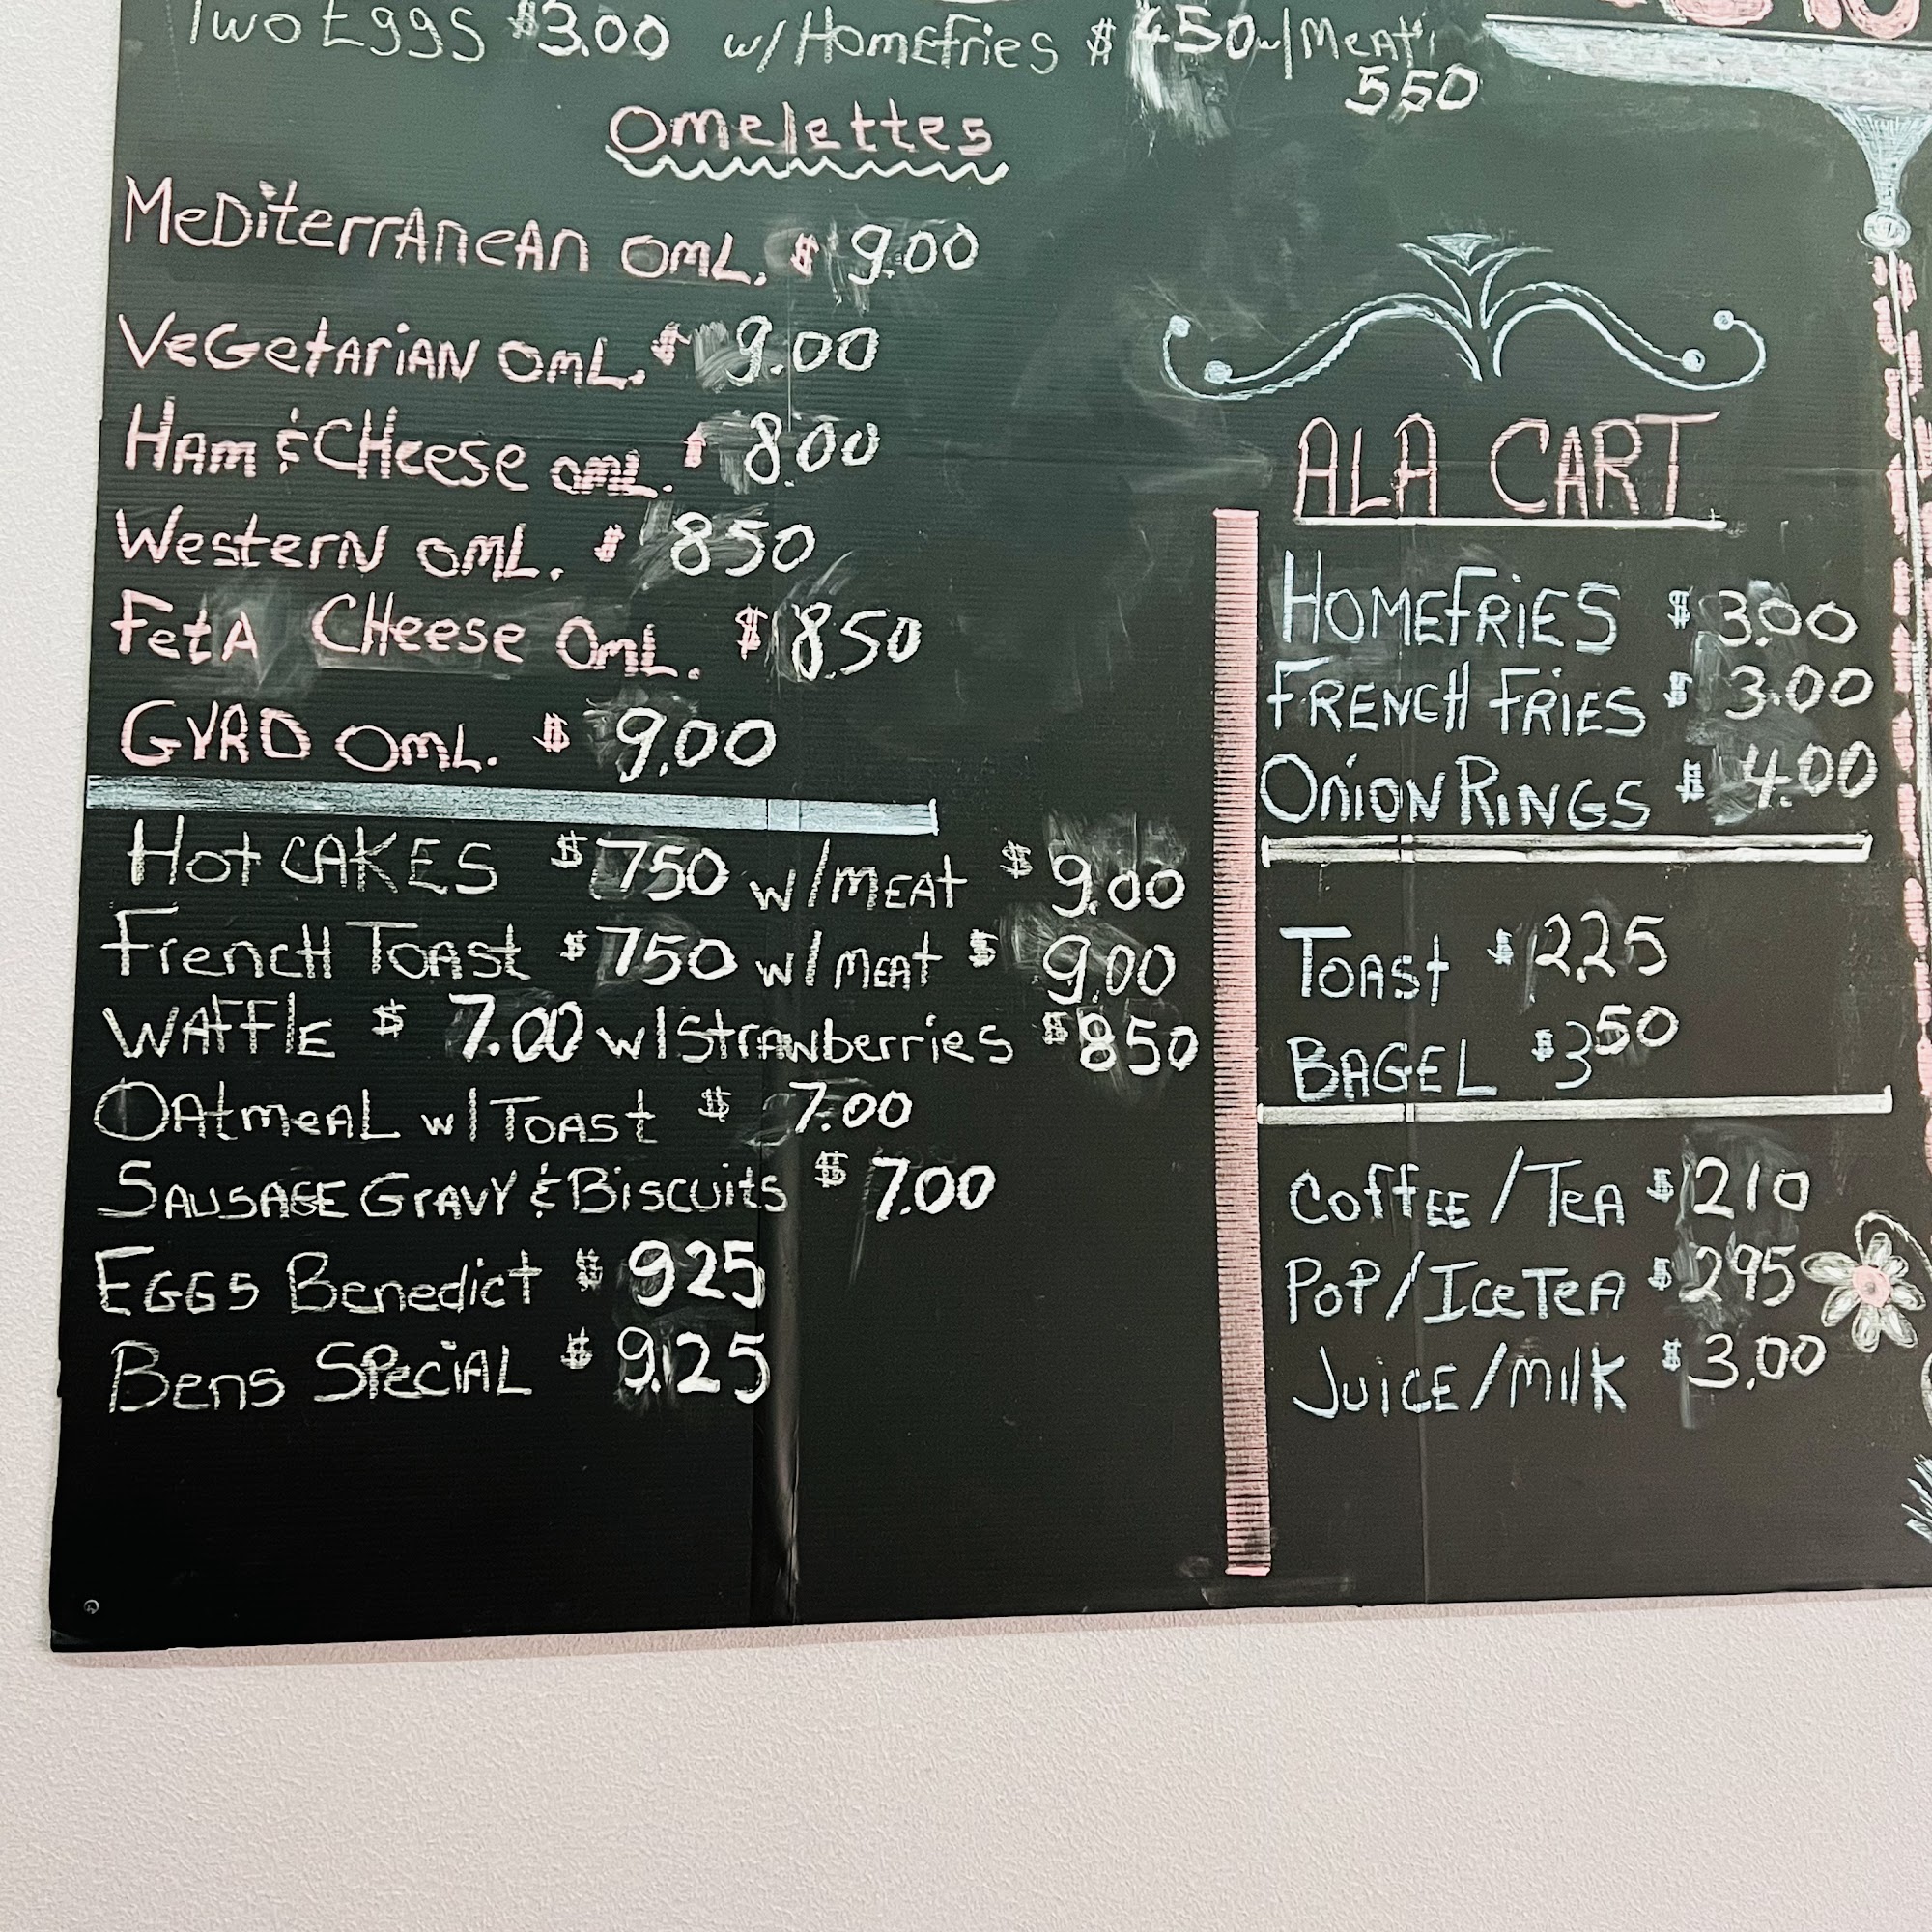 Two Eggs $3.00 w/Homefries $450 w/Meat
5.50
Omelettes
Mediterranean Oml. $ 9.00
Vegetarian Oml. $ 9.00
Ham & Cheese Oml. $ 8.00
Western Oml. $ 850
Feta Cheese Oml. $ 8.50
Gyro Oml. $ 9.00
Hot Cakes $ 750 w/meat $ 9.00
French Toast $ 750 w/meat $ 9.00
Waffle $ 7.00 w/Strawberries $ 850
Oatmeal w/Toast $ 7.00
Sausage Gravy & Biscuits $ 7.00
Eggs Benedict $ 925
Bens Special $ 9.25
ALA CART
Homefries $ 3.00
French Fries $ 3.00
Onion Rings $ 4.00
Toast $ 2.25
Bagel $3 50
Coffee/Tea $ 210
Pop/Ice Tea $ 295
Juice/Milk $ 3.00